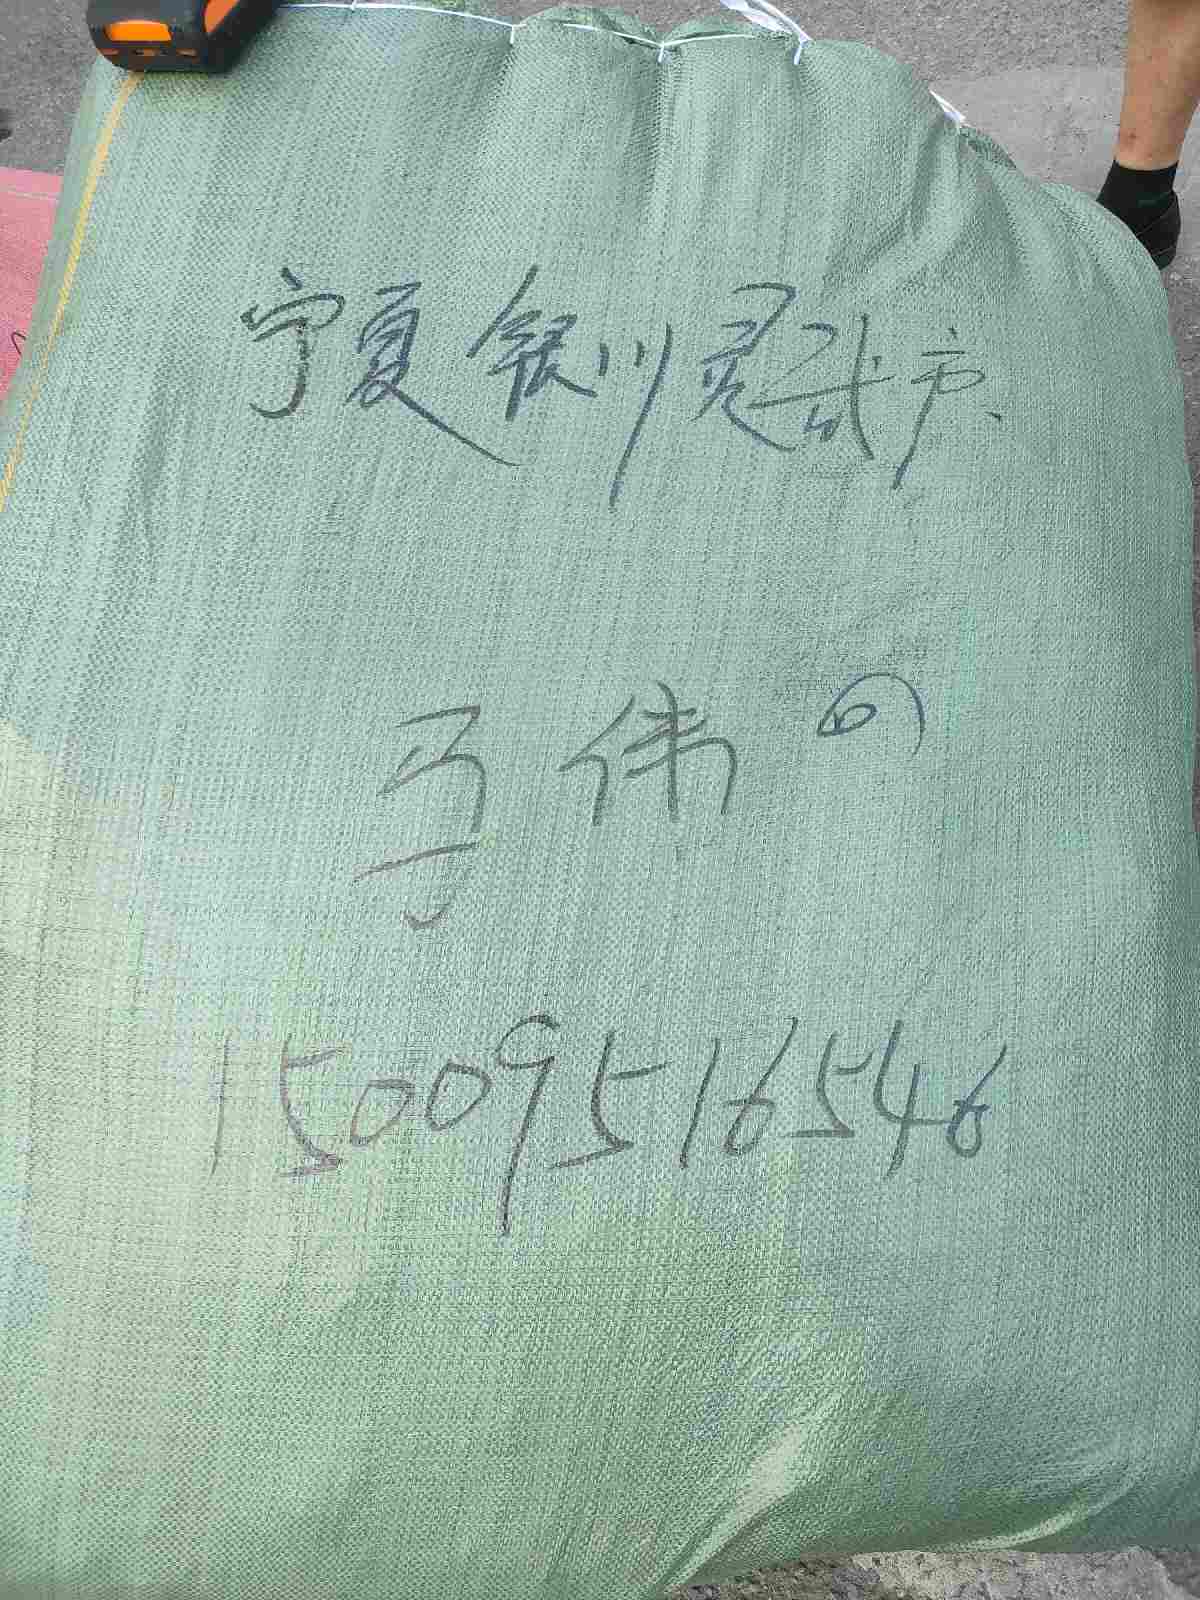 宁夏银川灵武市
马伟 ⑥
15009516546